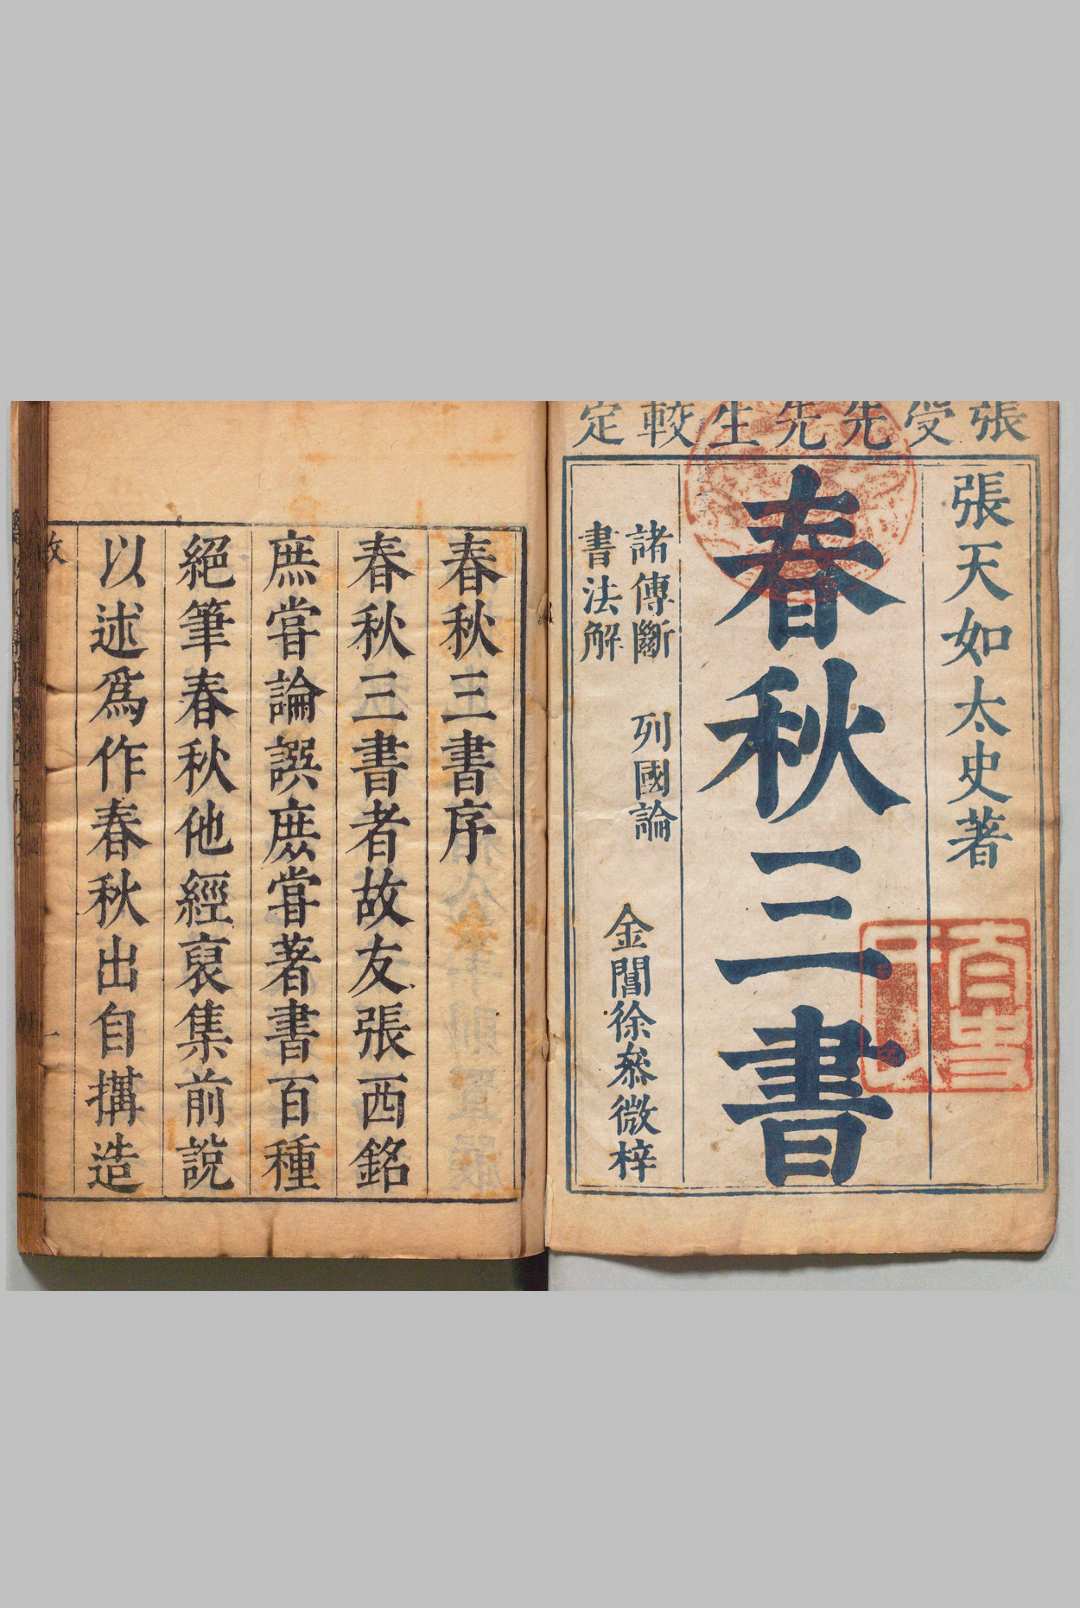 張受先先生較定
張天如太史著
春秋三書
諸傳斷 列國論
書法解
金閶徐叅微梓
春秋三書序
春秋三書者故友張西銘
庶嘗論譔庶嘗著書百種
絕筆春秋他經裒集前說
以述爲作春秋出自搆造